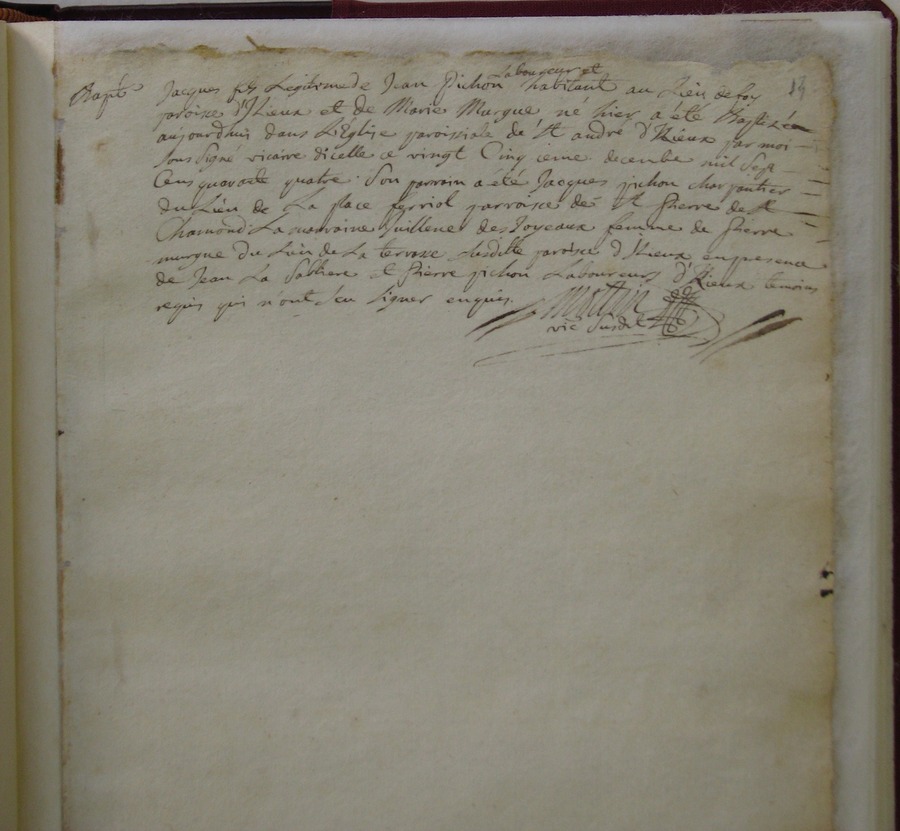 Laboureur et
Bapte Jacques fils Légitime de Jean Pichon habitant au Lieu de foy 13
paroisse d'Izieux et de Marie Murgue né hier a été Baptizé
aujourdhuy dans L'Eglise paroissiale de St andré d'Izieux par moi
soussigné vicaire dicelle ce vingt Cinq ieme decembre mil Sept
Cens quarante quatre. Son parrain a été Jacques pichon charpentier
du Lieu de La place ferriol parroisse de St Pierre de St
Chamond La marraine Guillene des Joyeaux femme de Pierre
murgue du Lieu de La terrasse susditte paroisse d'Izieux en presence
de Jean La Sabliere et Pierre pichon Laboureurs d'Izieux temoins
requis qui n'ont sçu signer enquis.
Mattin
vic susdit